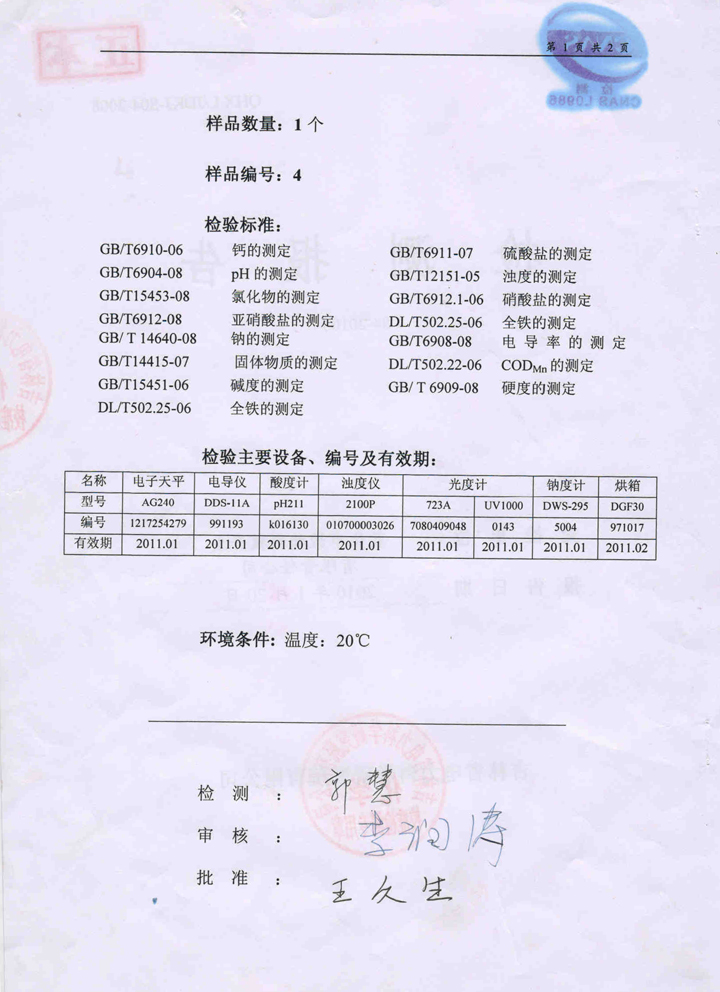 第 1 页 共 2 页
样品数量：1 个
样品编号：4
检验标准：
GB/T6910-06 钙的测定 GB/T6911-07 硫酸盐的测定
GB/T6904-08 pH 的测定 GB/T12151-05 浊度的测定
GB/T15453-08 氯化物的测定 GB/T6912.1-06 硝酸盐的测定
GB/T6912-08 亚硝酸盐的测定 DL/T502.25-06 全铁的测定
GB/ T 14640-08 钠的测定 GB/T6908-08 电 导 率 的 测 定
GB/T14415-07 固体物质的测定 DL/T502.22-06 CODMn 的测定
GB/T15451-06 碱度的测定 GB/ T 6909-08 硬度的测定
DL/T502.25-06 全铁的测定
检验主要设备、编号及有效期：
名称 电子天平 电导仪 酸度计 浊度仪 光度计 钠度计 烘箱
型号 AG240 DDS-11A pH211 2100P 723A UV1000 DWS-295 DGF30
编号 1217254279 991193 k016130 010700003026 7080409048 0143 5004 971017
有效期 2011.01 2011.01 2011.01 2011.01 2011.01 2011.01 2011.01 2011.02
环境条件: 温度：20℃
检 测 ： 郭慧
审 核 ： 李润涛
批 准 ： 王久生